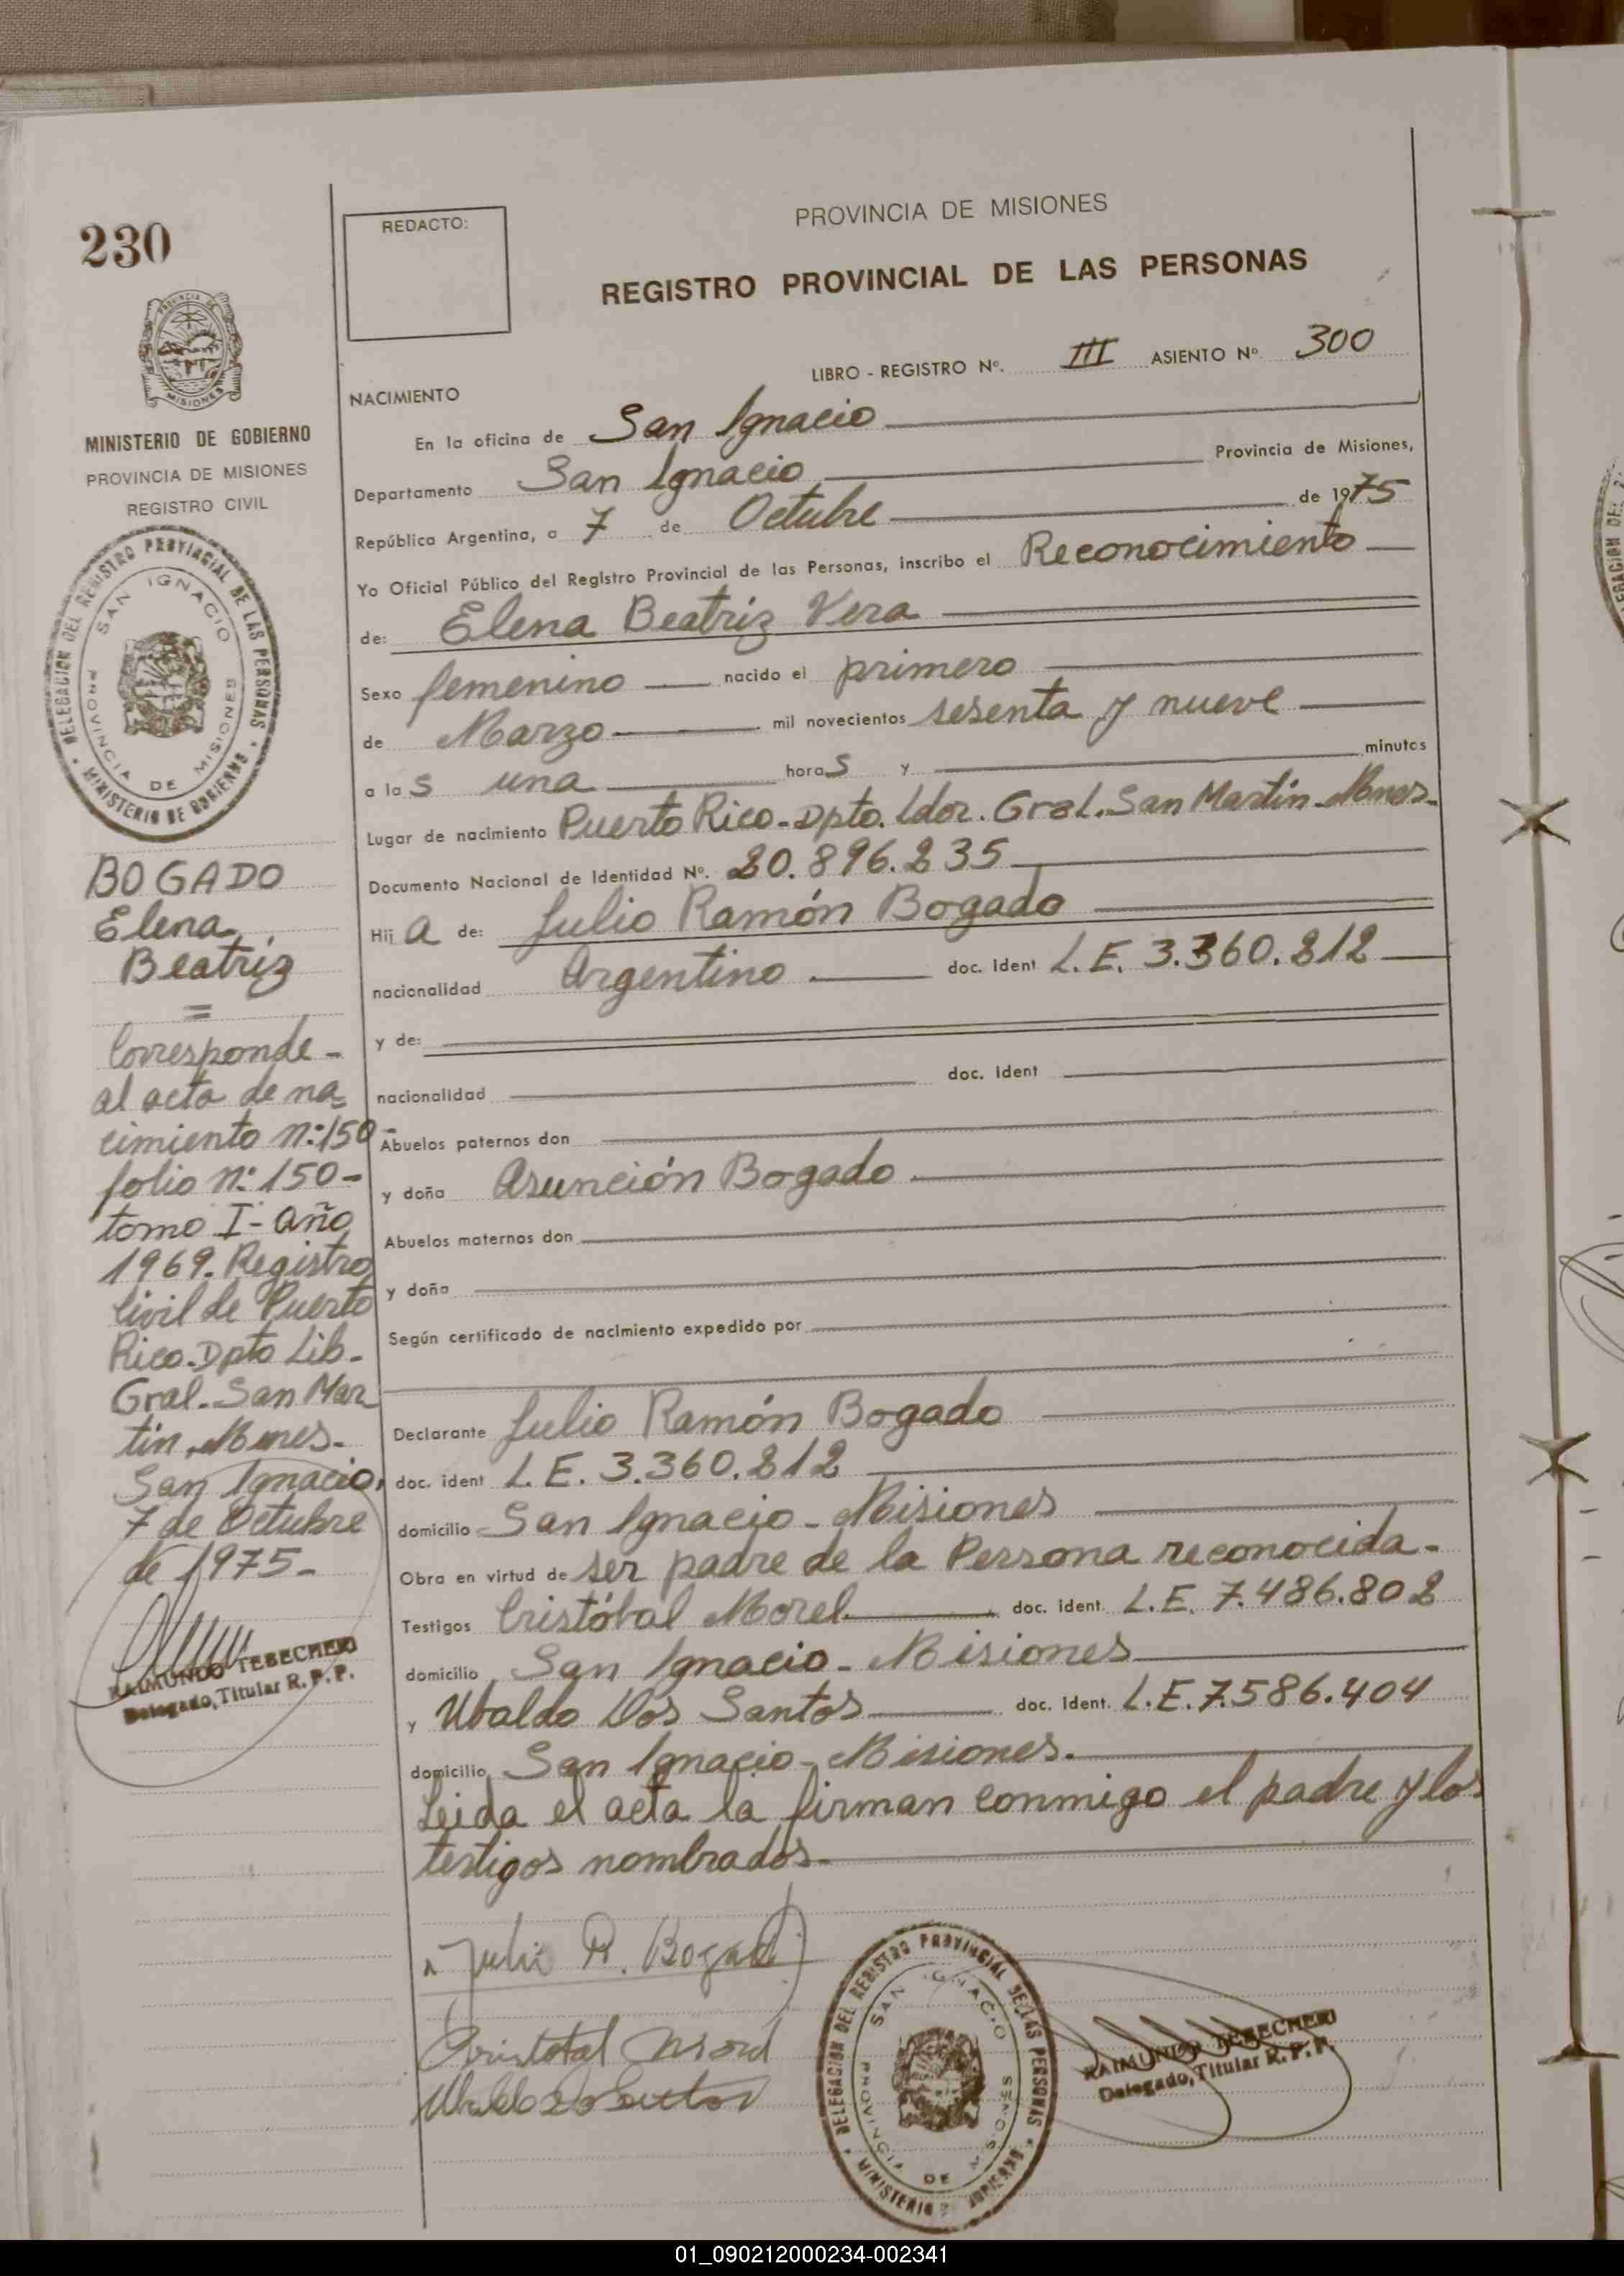 230
REDACTO:
PROVINCIA DE MISIONES
REGISTRO PROVINCIAL DE LAS PERSONAS
LIBRO - REGISTRO Nº. III ASIENTO Nº. 300
MINISTERIO DE GOBIERNO
PROVINCIA DE MISIONES
REGISTRO CIVIL
DELEGACION DEL REGISTRO PROVINCIAL DE LAS PERSONAS
MINISTERIO DE GOBIERNO
SAN IGNACIO
PROVINCIA DE MISIONES
BOGADO
Elena
Beatriz
Corresponde-
al acta de na-
cimiento n:150-
folio n: 150-
tomo I- año
1969. Registro
Civil de Puerto
Rico. Dpto Lib-
Gral. San Mar
tin. Mnes-
San Ignacio,
7 de Octubre
de 1975-
RAIMUNDO TEBECHERI
Delegado, Titular R. P. P.
NACIMIENTO
En la oficina de San Ignacio
Departamento San Ignacio Provincia de Misiones,
República Argentina, a 7 de Octubre de 1975
Yo Oficial Público del Registro Provincial de las Personas, inscribo el Reconocimiento
de: Elena Beatriz Vera
Sexo femenino nacido el primero
de Marzo mil novecientos sesenta y nueve
a las una horas y minutos
Lugar de nacimiento Puerto Rico-Dpto. Ldor. Gral. San Martin-Mnes-
Documento Nacional de Identidad Nº. 20.896.235
Hija de: Julio Ramón Bogado
nacionalidad Argentino doc. Ident L.E. 3.360.212
y de:
nacionalidad doc. Ident
Abuelos paternos don
y doña Asunción Bogado
Abuelos maternos don
y doña
Según certificado de nacimiento expedido por
Declarante Julio Ramón Bogado
doc. ident L.E. 3.360.212
domicilio San Ignacio - Misiones
Obra en virtud de ser padre de la Persona reconocida-
Testigos Cristóbal Morel doc. ident. L.E. 7.486.802
domicilio San Ignacio - Misiones
y Ubaldo Dos Santos doc. Ident. L.E.7.586.404
domicilio San Ignacio - Misiones.
Leida el acta la firman conmigo el padre y los
testigos nombrados-
Julio R. Bogado
Cristobal Morel
Ubaldo Dos Santos
DELEGACION DEL REGISTRO PROVINCIAL DE LAS PERSONAS
MINISTERIO DE GOBIERNO
SAN IGNACIO
PROVINCIA DE MISIONES
RAIMUNDO TEBECHERI
Delegado, Titular R. P. P.
01_090212000234-002341